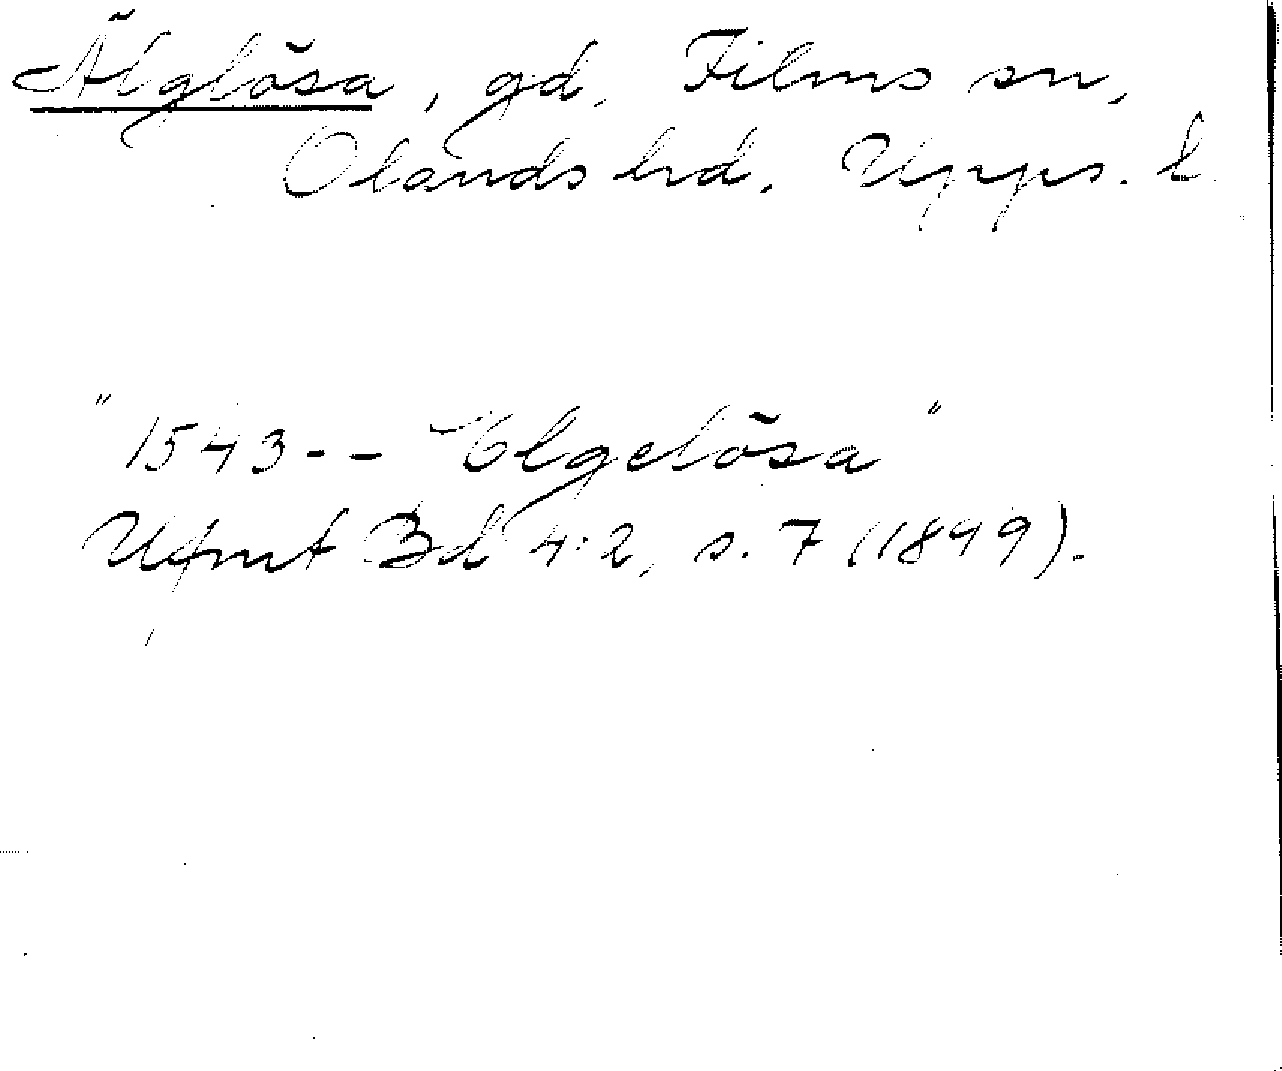 Älglösa, gd, Films sn,
Olands hrd, Upps. l.
"1543-- Elgelösa"
Ufmt Bd 4:2, s. 7 (1899).